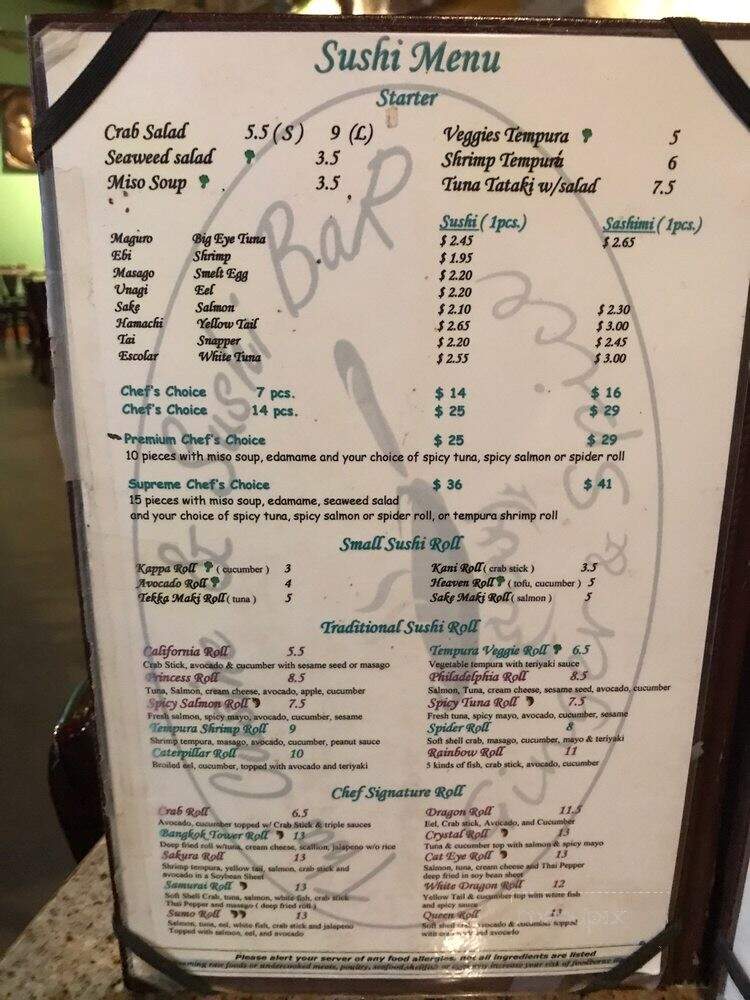 Sushi Menu
Starter
Crab Salad 5.5 (S) 9 (L)
Seaweed salad 3.5
Miso Soup 3.5
Veggies Tempura 5
Shrimp Tempura 6
Tuna Tataki w/salad 7.5
Sushi ( 1pcs.) Sashimi ( 1pcs.)
Maguro Big Eye Tuna $ 2.45 $ 2.65
Ebi Shrimp $ 1.95
Masago Smelt Egg $ 2.20
Unagi Eel $ 2.20
Sake Salmon $ 2.10 $ 2.30
Hamachi Yellow Tail $ 2.65 $ 3.00
Tai Snapper $ 2.20 $ 2.45
Escolar White Tuna $ 2.55 $ 3.00
Chef's Choice 7 pcs. $ 14 $ 16
Chef's Choice 14 pcs. $ 25 $ 29
Premium Chef's Choice $ 25 $ 29
10 pieces with miso soup, edamame and your choice of spicy tuna, spicy salmon or spider roll
Supreme Chef's Choice $ 36 $ 41
15 pieces with miso soup, edamame, seaweed salad
and your choice of spicy tuna, spicy salmon or spider roll, or tempura shrimp roll
Small Sushi Roll
Kappa Roll ( cucumber ) 3
Avocado Roll 4
Tekka Maki Roll ( tuna ) 5
Kani Roll ( crab stick ) 3.5
Heaven Roll ( tofu, cucumber ) 5
Sake Maki Roll ( salmon ) 5
Traditional Sushi Roll
California Roll 5.5
Crab Stick, avocado & cucumber with sesame seed or masago
Princess Roll 8.5
Tuna, Salmon, cream cheese, avocado, apple, cucumber
Spicy Salmon Roll 7.5
Fresh salmon, spicy mayo, avocado, cucumber, sesame
Tempura Shrimp Roll 9
Shrimp tempura, masago, avocado, cucumber, peanut sauce
Caterpillar Roll 10
Broiled eel, cucumber, topped with avocado and teriyaki
Tempura Veggie Roll 6.5
Vegetable tempura with teriyaki sauce
Philadelphia Roll 8.5
Salmon, Tuna, cream cheese, sesame seed, avocado, cucumber
Spicy Tuna Roll 7.5
Fresh tuna, spicy mayo, avocado, cucumber, sesame
Spider Roll 8
Soft shell crab, masago, cucumber, mayo & teriyaki
Rainbow Roll 11
5 kinds of fish, crab stick, avocado, cucumber
Chef Signature Roll
Crab Roll 6.5
Avocado, cucumber topped w/ Crab Stick & triple sauces
Bangkok Tower Roll 13
Deep fried roll w/tuna, cream cheese, scallion, jalapeno w/o rice
Sakura Roll 13
Shrimp tempura, yellow tail, salmon, crab stick and
avocado in a Soybean Sheet
Samurai Roll 13
Soft Shell Crab, tuna, salmon, white fish, crab stick
Thai Pepper and masago ( deep fried roll )
Sumo Roll 13
Salmon, tuna, eel, white fish, crab stick and jalapeno
Topped with salmon, eel, and avocado
Dragon Roll 11.5
Eel, Crab stick, Avocado, and Cucumber
Crystal Roll 13
Tuna & cucumber top with salmon & spicy mayo
Cat Eye Roll 13
Salmon, tuna, cream cheese and Thai Pepper
deep fried in soy bean sheet
White Dragon Roll 12
Yellow Tail & cucumber top with white fish
and spicy sauce
Queen Roll 13
Soft shell crab, avocado & cucumber topped
with and avocado
Please alert your server of any food allergies, not all ingredients are listed
raw foods or undercooked meats, poultry, seafood, shellfish or may increase your risk of foodborne